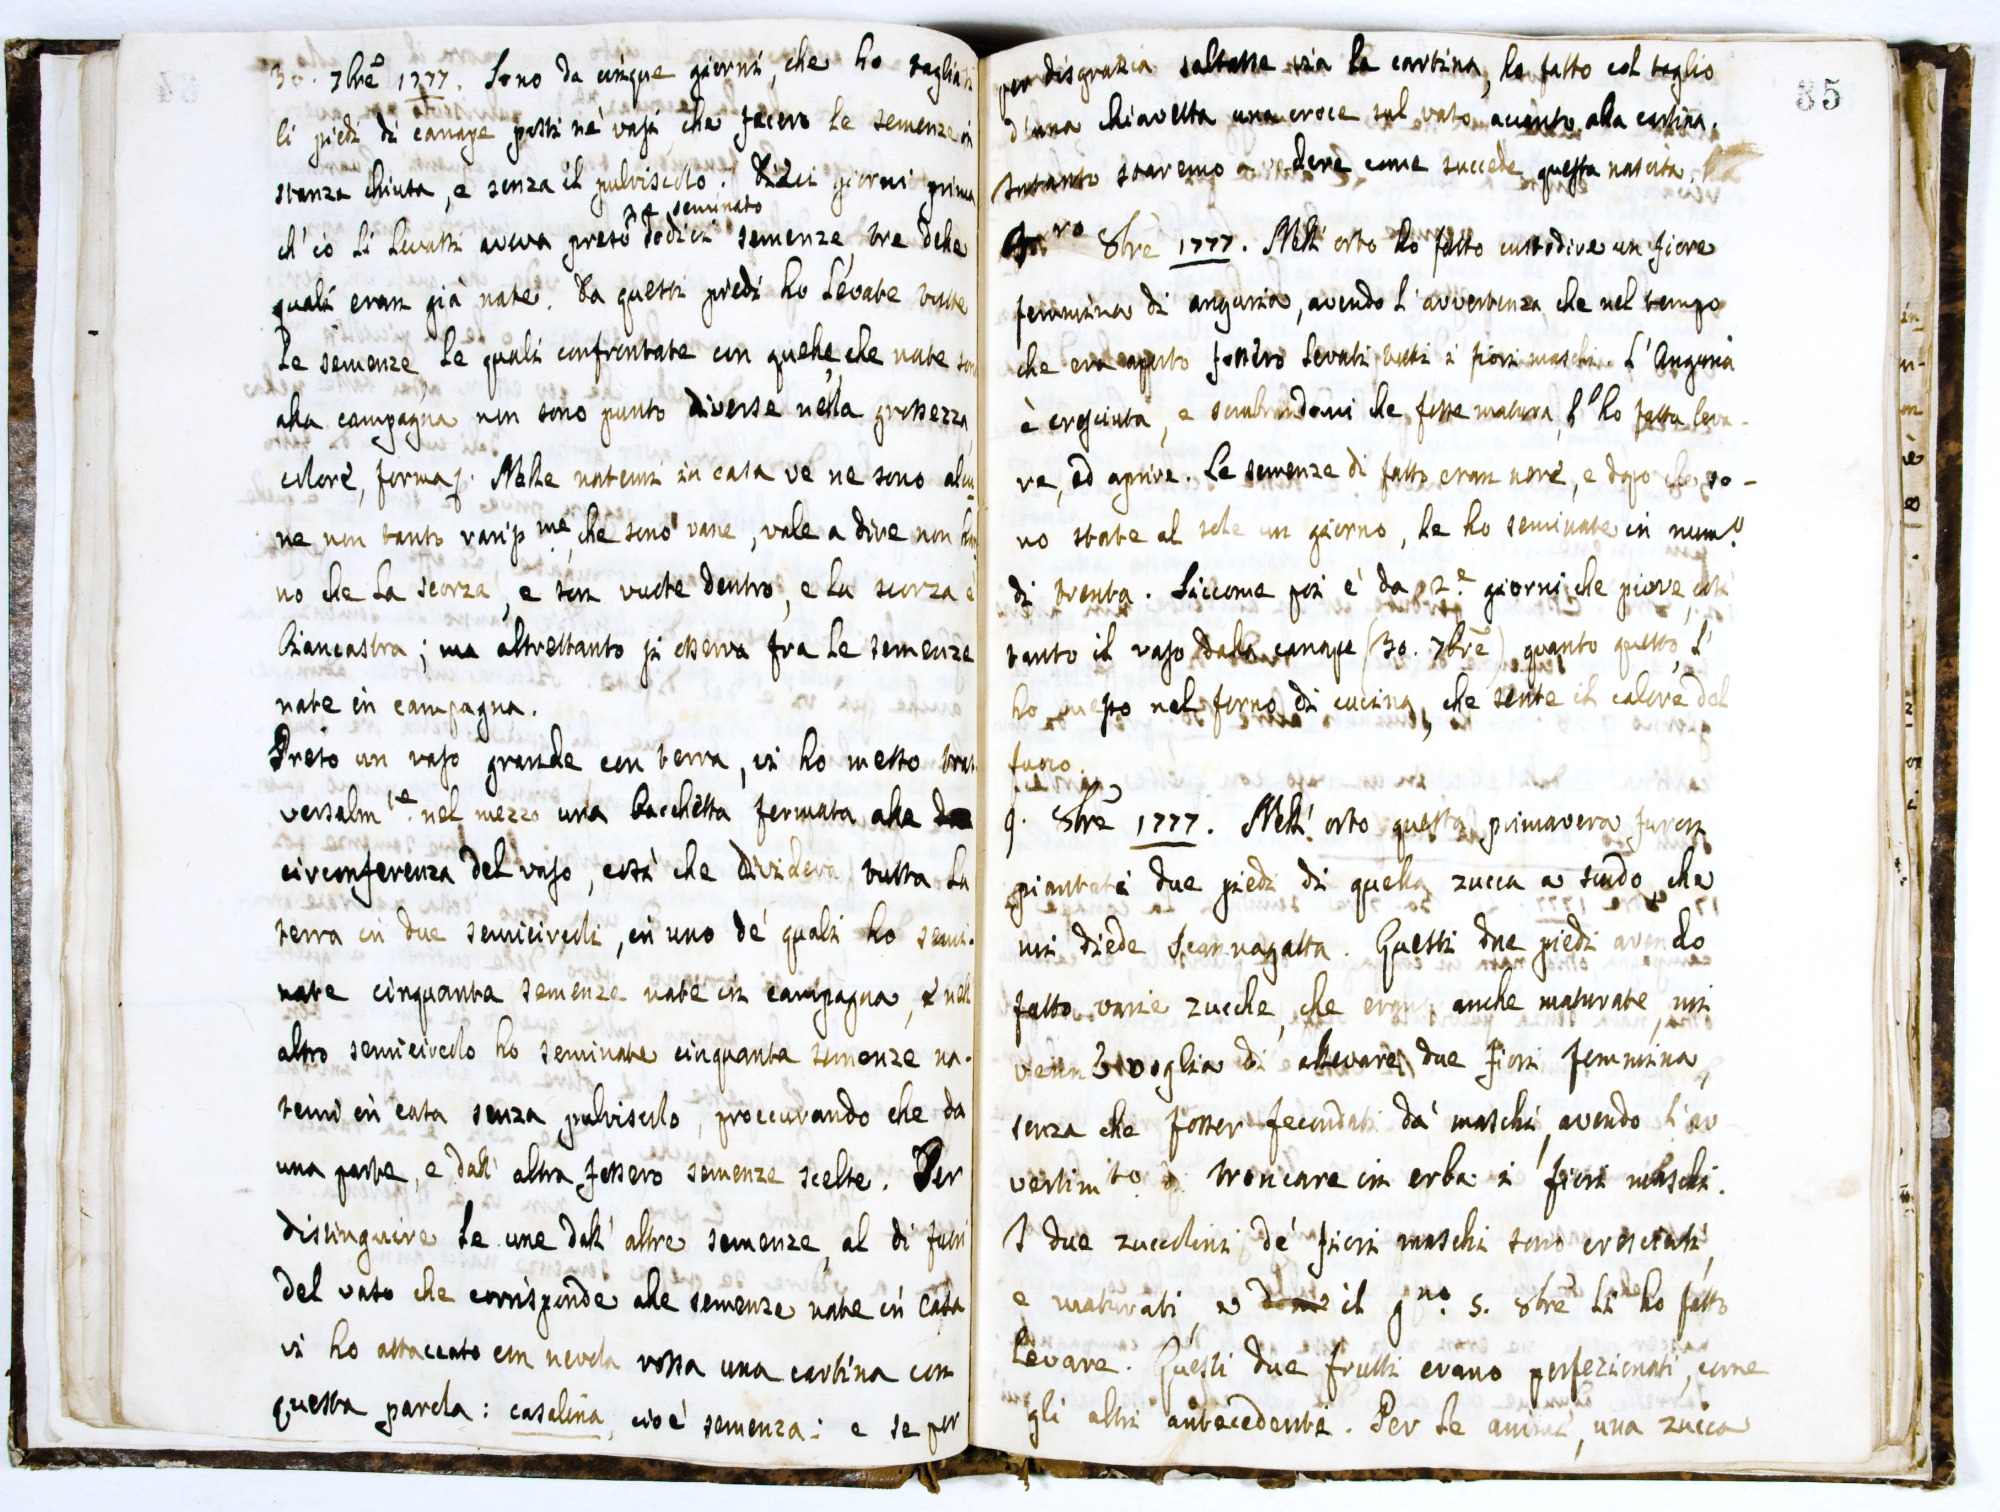 30. 7bre 1777. Sono da cinque giorni, che ho tagliati
li piedi di canape posti ne' vasi, che fecero le semenze in
stanza chiusa, e senza il pulviscolo. Dieci giorni prima
ch' io li levassi aveva preso, e seminato dodici semenze, tre delle
quali eran già nate. Da questi piedi ho levate tutte
le semenze, le quali confrontate con quelle, che nate sono
alla campagna non sono punto diverse nella grossezza,
colore, forma. Nelle natemi in casa ve ne sono alcu-
ne non tanto, che sono vane, vale a dire non han-
no che la scorza, e son vuote dentro, e la scorza è
biancastra; ma altrettanto si osserva fra le semenze
nate in campagna.
Preso un vaso grande con terra, vi ho messo tras-
versalmte. nel mezzo una bacchetta fermata alla
circonferenza del vaso, così che divideva tutta la
terra in due semicircoli, in uno de' quali ho semi-
nate cinquanta semenze nate in campagna, e nell'
altro semicircolo ho seminate cinquanta semenze na-
temi in casa senza pulviscolo, proccurando che da
una parte, e dall' altra fossero semenze scelte. Per
distinguire le une dall' altre semenze, al di fuori
del vaso che corrisponde alle semenze nate in casa
vi ho attaccato con nevola rossa una cartina con
questa parola: casolina, cioè semenza: e se per
85
per disgrazia saltasse via la cartina, ho fatto col taglio
d'una chiavetta una croce sul vaso accanto alla cartina.
Intanto staremo a vedere come succede questa nascita.
Pro 8bre 1777. Nell' orto ho fatto custodire un fiore
femmina di anguria, avendo l' avvertenza che nel tempo
che era aperto fossero levati tutti i fiori maschi. L' Anguria
è cresciuta, e sembrandomi che fosse matura, l' ho fatta leva-
re, ed aprire. Le semenze di fatto eran nere, e dopo che so-
no state al sole un giorno, le ho seminate in num.o
di trenta. Siccome poi è da 2.e giorni che piove, così
tanto il vaso dalla canape (30. 7bre) quanto questo, l'
ho messo nel forno di cucina, che sente il calore del
fuoco.
9. 8bre 1777. Nell' orto questa primavera furon
piantati due piedi di quella zucca a scudo, che
mi diede Scannagatta. Questi due piedi avendo
fatto varie zucche, che erano anche maturate, mi
venne voglia di allevare due fiori femmina,
senza che fosser fecondati da' maschi, avendo l'av-
vertimto. di troncare in erba i fiori maschi.
I due zuccolini de' fiori maschi sono cresciuti,
e maturati, e il gno. 5. 8bre li ho fatto
levare. Questi due frutti erano perfezionati, come
gli altri antecedenti. Per le anime, una zucca